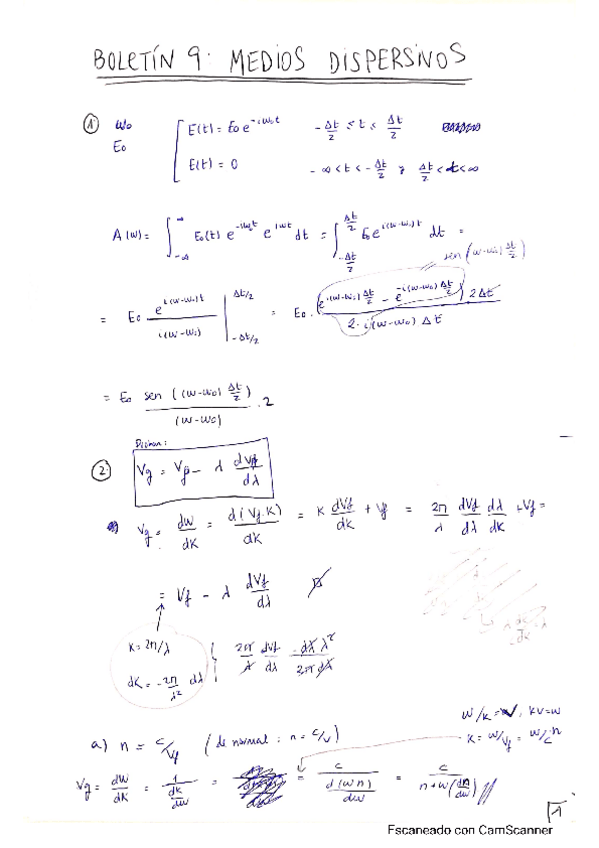 BOLETÍN 9: MEDIOS DISPERSIVOS
① ω₀ E(t) = E₀ e^{-iω₀t} -Δt/2 ≤ t ≤ Δt/2
E₀ E(t) = 0 -∞ < t < -Δt/2 y Δt/2 < t < ∞
A(ω) = ∫_{-∞}^{∞} E₀(t) e^{-iω₀t} e^{iωt} dt = ∫_{-Δt/2}^{Δt/2} E₀ e^{i(ω-ω₀)t} dt =
sen (ω-ω₀) Δt/2
= E₀ e^{i(ω-ω₀)t} / i(ω-ω₀) |_{-Δt/2}^{Δt/2} = E₀ · (e^{i(ω-ω₀)Δt/2} - e^{-i(ω-ω₀)Δt/2}) 2Δt / 2·i(ω-ω₀) Δt
= E₀ sen ((ω-ω₀) Δt/2) / (ω-ω₀) · 2
② Vg = Vf - λ dVf/dλ
Vg = dω/dK = d(Vf·K)/dK = K dVf/dK + Vf = 2π/λ dVf/dλ dλ/dK + Vf =
= Vf - λ dVf/dλ
K = 2π/λ 2π/λ dVf/dλ -dλ λ²/2π dλ
dK = -2π/λ² dλ
ω/K = v, KV = ω
a) n = c/Vf (de normal: n = c/v) K = ω/Vf = ω/c n
Vg = dω/dK = 1/(dK/dω) = = c/(d(ωn)/dω) = c/(n+ω(dn/dω))
1
Escaneado con CamScanner